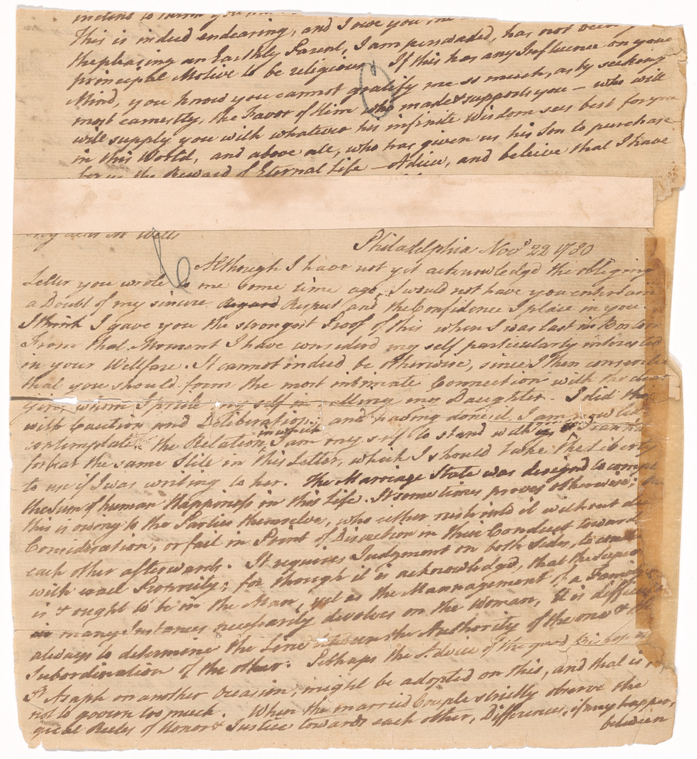 This is indeed endearing, and I owe you
the pleasing an Earthly Parent, I am perswaded, has not been
principal Motive to be religious. If this has any Influence on your
Mind, you know you cannot gratify me so much, as by seeking
most earnestly, the Favor of Him who made & supports you — who will
will supply you with whatever his infinite Wisdom sees best for you
in this World, and above all, who has given us his Son to purchase
for us the Reward of Eternal Life — Adieu, and beleive that I have
my dear Mr Wells
Philadelphia Novr 22 1780
Although I have not yet acknowledgd the obliging
Letter you wrote to me some time ago, I would not have you entertain
a Doubt of my sincere Regard Respect and the Confidence I place in you
I think I gave you the strongest Proof of this when I was last in Boston
From that Moment I have considerd my self particularly interested
in your Wellfare. It cannot indeed be otherwise, since I then consented
that you should form the most intimate Connection with the dear
Girl whom I pride my self in calling my Daughter. I did this
with Caution and Deliberation; and having done it, I am now led to
contemplate the Relation in which I am my self to stand with you & I cannot
forbear the same Stile in this Letter, which I should take the Liberty
to use if I was writing to her. The Marriage State was designd to complete
the Sum of human Happiness in this Life. It some times proves otherwise; but
this is owing to the Parties themselves, who either rush into it without due
Consideration, or fail in Point of Discretion in their Conduct towards
each other afterwards. It requires Judgment on both Sides, to conduct
with exact Propriety; for though it is acknowledged, that the Superiority
is & ought to be in the Man, yet as the Mannagement of a Family
in many Instances necessarily devolves on the Woman, it is difficult
always to determine the Line between the Authority of the one & the
Subordination of the other. Perhaps the Advice of the good Bishop of
St Asaph on another Occasion, might be adopted on this, and that is
not to govern too much. When the married Couple strictly observe the
great Rules of Honor & Justice towards each other, Differences, if any happen,
between